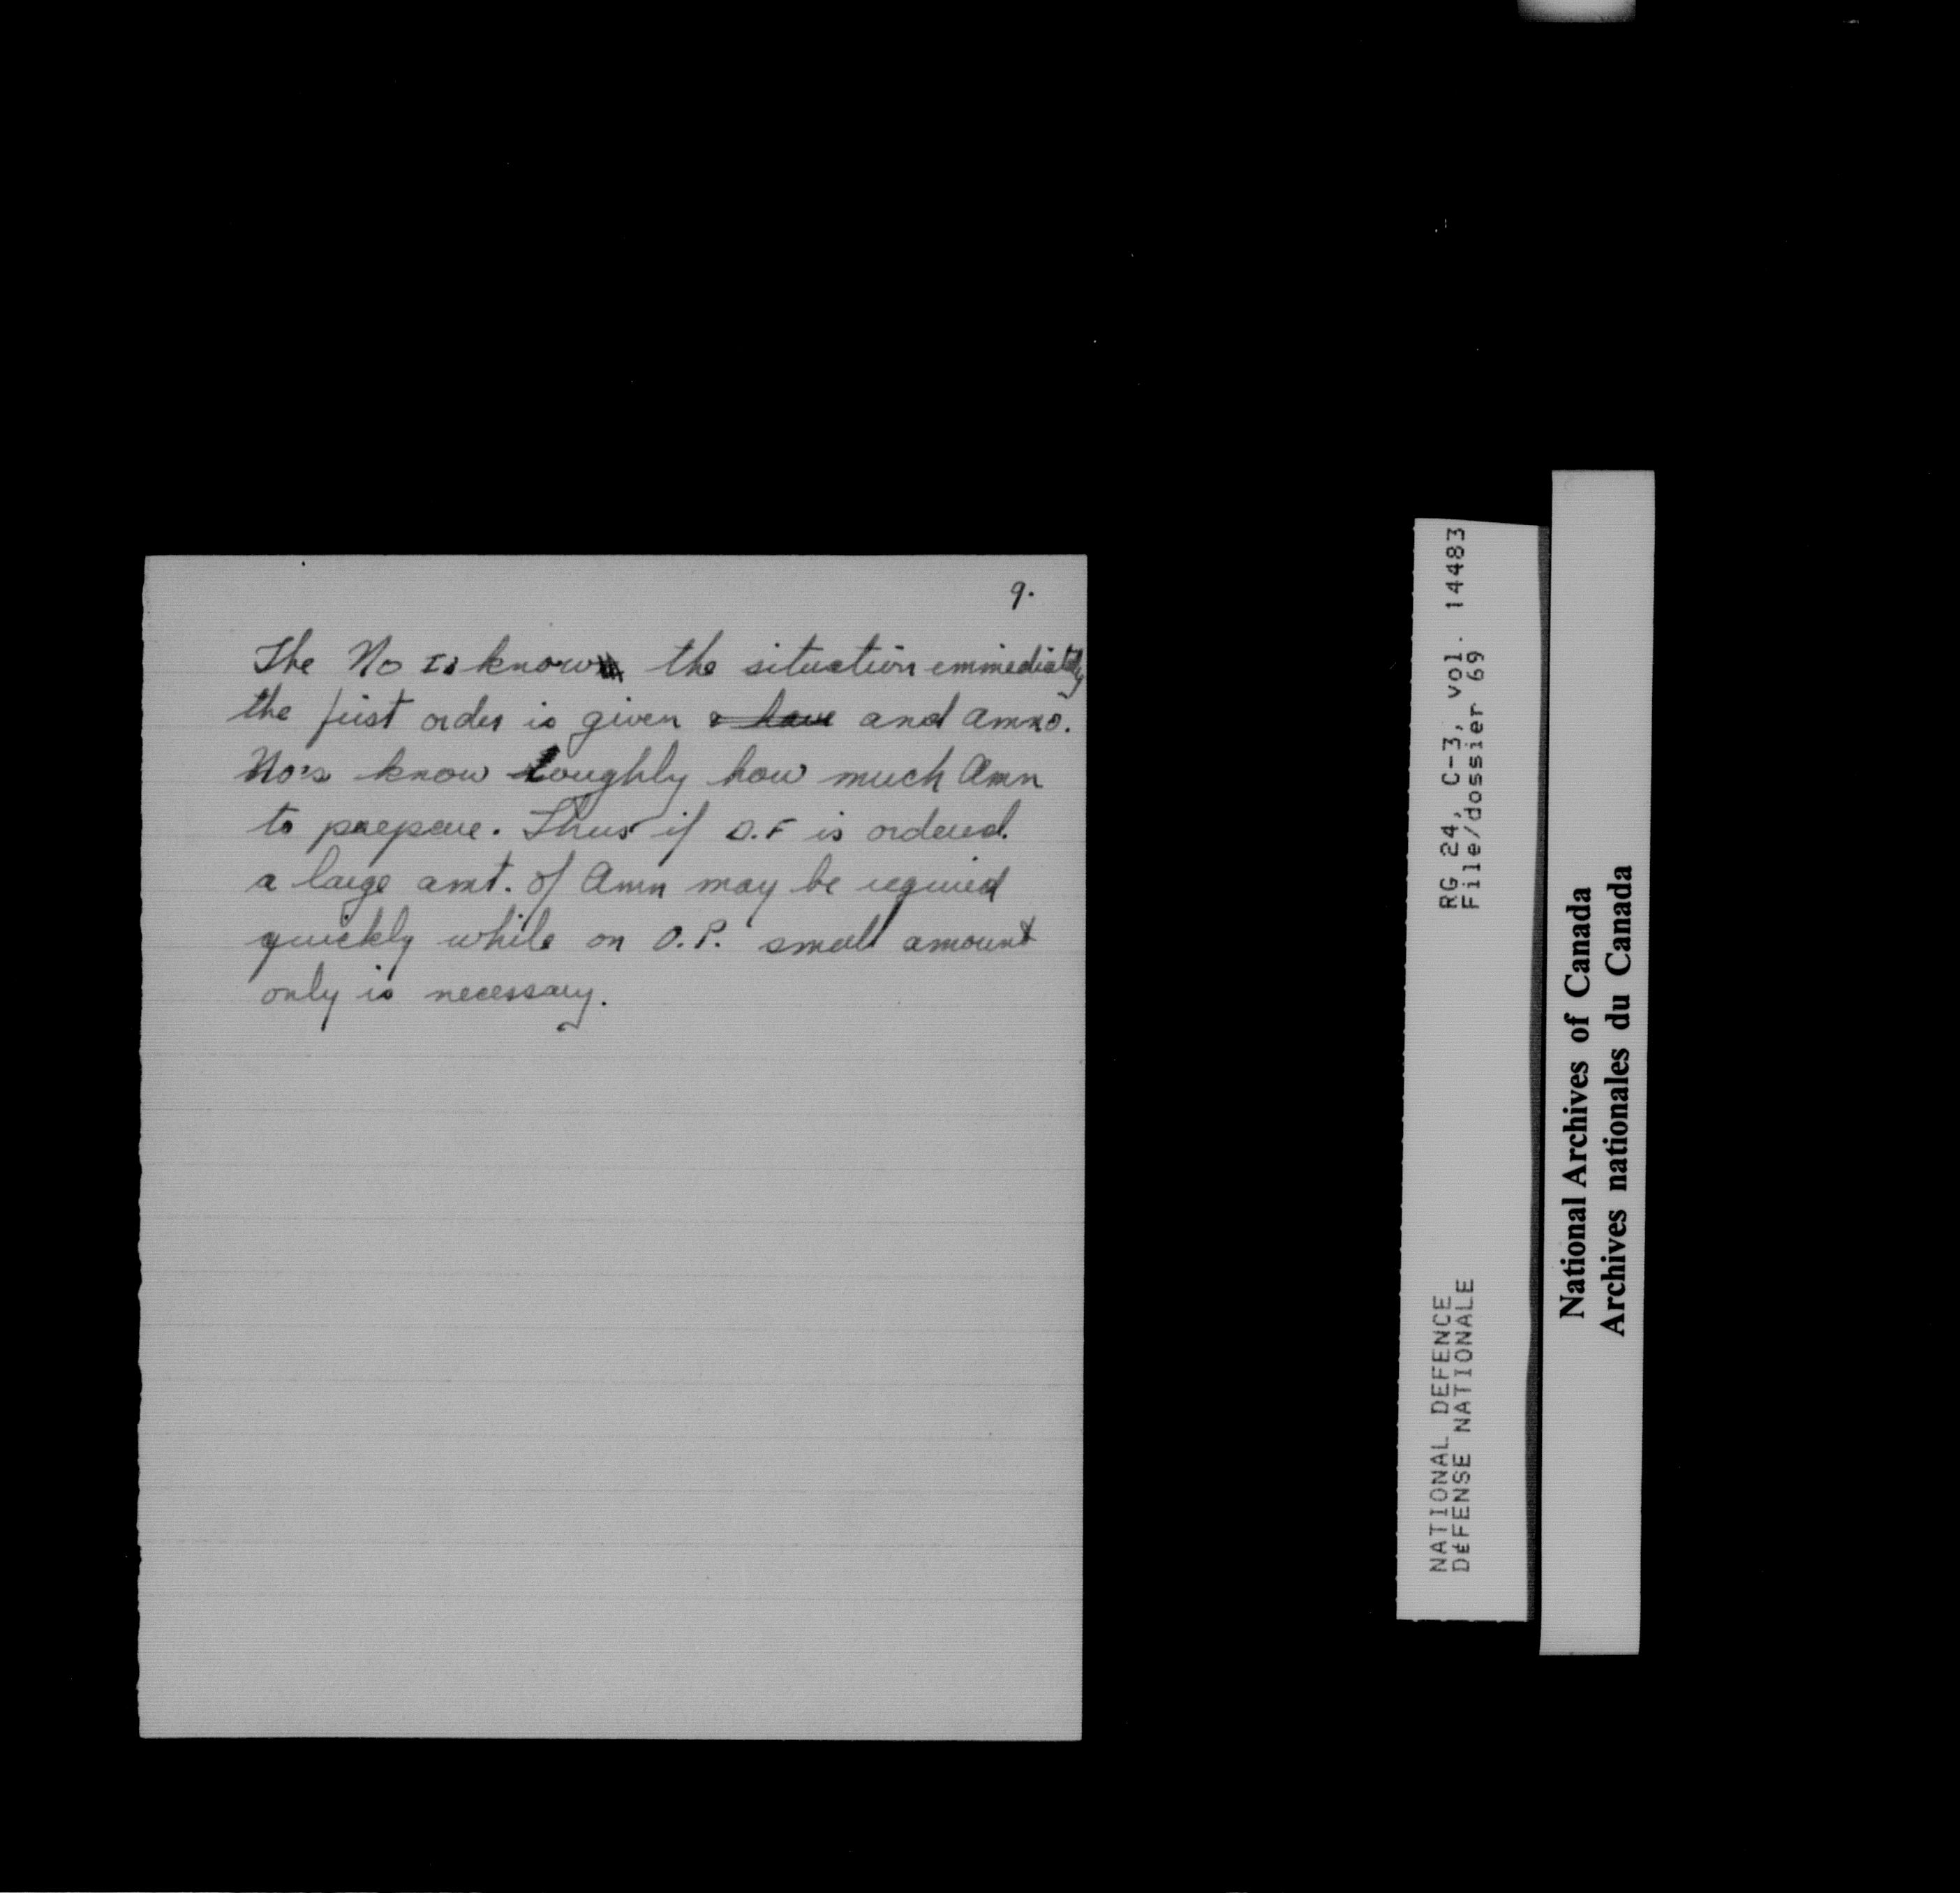 9.
The No Is know the situation emmediately
the first order is given & have and ammo.
No's know roughly how much Amn
to prepare. Thus if D.F is ordered.
a large amt. of Amn may be required
quickly while on O.P. small amount
only is necessary.
RG 24, C-3, vol. 14483
File/dossier 69
NATIONAL DEFENCE
DÉFENSE NATIONALE
National Archives of Canada
Archives nationales du Canada